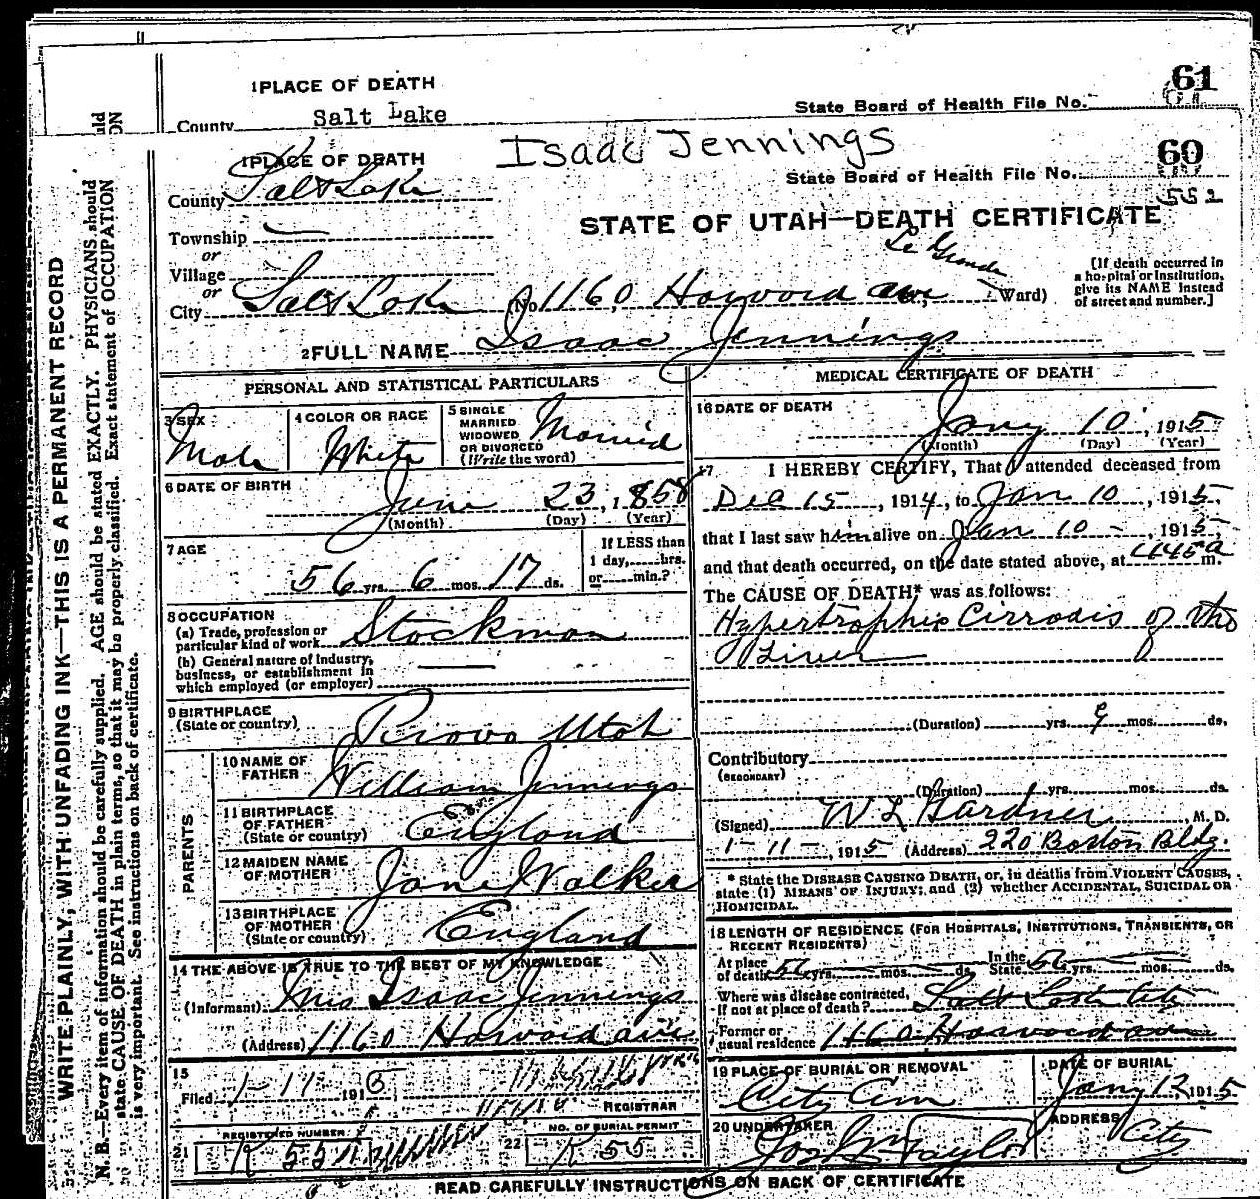 1 PLACE OF DEATH
61
State Board of Health File No.
County Salt Lake
Isaac Jennings
60
1 PLACE OF DEATH
State Board of Health File No.
County Salt Lake
552
STATE OF UTAH—DEATH CERTIFICATE
Township
or
Village
or
City Salt Lake (No. 1160 Harvard ave Le Grande Ward)
[If death occurred in
a hospital or institution,
give its NAME instead
of street and number.]
2 FULL NAME Isaac Jennings
PERSONAL AND STATISTICAL PARTICULARS
3 SEX Male
4 COLOR OR RACE White
5 SINGLE
MARRIED
WIDOWED
OR DIVORCED
(Write the word) Married
6 DATE OF BIRTH
June 23, 1858
(Month) (Day) (Year)
7 AGE
56 yrs. 6 mos. 17 ds.
If LESS than
1 day, hrs.
or min.?
8 OCCUPATION
(a) Trade, profession or
particular kind of work Stockman
(b) General nature of industry,
business, or establishment in
which employed (or employer)
9 BIRTHPLACE
(State or country) Provo Utah
PARENTS
10 NAME OF
FATHER William Jennings
11 BIRTHPLACE
OF FATHER
(State or country) England
12 MAIDEN NAME
OF MOTHER Jane Walker
13 BIRTHPLACE
OF MOTHER
(State or country) England
14 THE ABOVE IS TRUE TO THE BEST OF MY KNOWLEDGE
(Informant) Mrs Isaac Jennings
(Address) 1160 Harvard ave
15
Filed 1-11 1915
REGISTRAR
21 REGISTERED NUMBER
22 NO. OF BURIAL PERMIT
K 55
MEDICAL CERTIFICATE OF DEATH
16 DATE OF DEATH
Jany 10, 1915
(Month) (Day) (Year)
17 I HEREBY CERTIFY, That I attended deceased from
Dec 15, 1914, to Jan 10, 1915,
that I last saw him alive on Jan 10, 1915
and that death occurred, on the date stated above, at 1145 a m.
The CAUSE OF DEATH* was as follows:
Hypertrophic Cirrosis of the
Liver
(Duration) yrs. 9 mos. ds.
Contributory
(SECONDARY)
(Duration) yrs. mos. ds.
(Signed) W L Gardner, M. D.
1-11-, 1915 (Address) 220 Boston Bldg.
* State the DISEASE CAUSING DEATH, or, in deaths from VIOLENT CAUSES,
state (1) MEANS OF INJURY; and (2) whether ACCIDENTAL, SUICIDAL OR
HOMICIDAL.
18 LENGTH OF RESIDENCE (FOR HOSPITALS, INSTITUTIONS, TRANSIENTS, OR
RECENT RESIDENTS)
At place
of death 56 yrs. mos. ds. In the
State 56 yrs. mos. ds.
Where was disease contracted,
If not at place of death? Salt Lake City
Former or
usual residence 1160 Harvard ave
19 PLACE OF BURIAL OR REMOVAL
City Cem
DATE OF BURIAL
Jany 12 1915
20 UNDERTAKER
Jos Wm Taylor
ADDRESS
City
READ CAREFULLY INSTRUCTIONS ON BACK OF CERTIFICATE
WRITE PLAINLY, WITH UNFADING INK—THIS IS A PERMANENT RECORD
N. B.—Every item of information should be carefully supplied. AGE should be stated EXACTLY. PHYSICIANS should
state CAUSE OF DEATH in plain terms, so that it may be properly classified. Exact statement of OCCUPATION
is very important. See instructions on back of certificate.